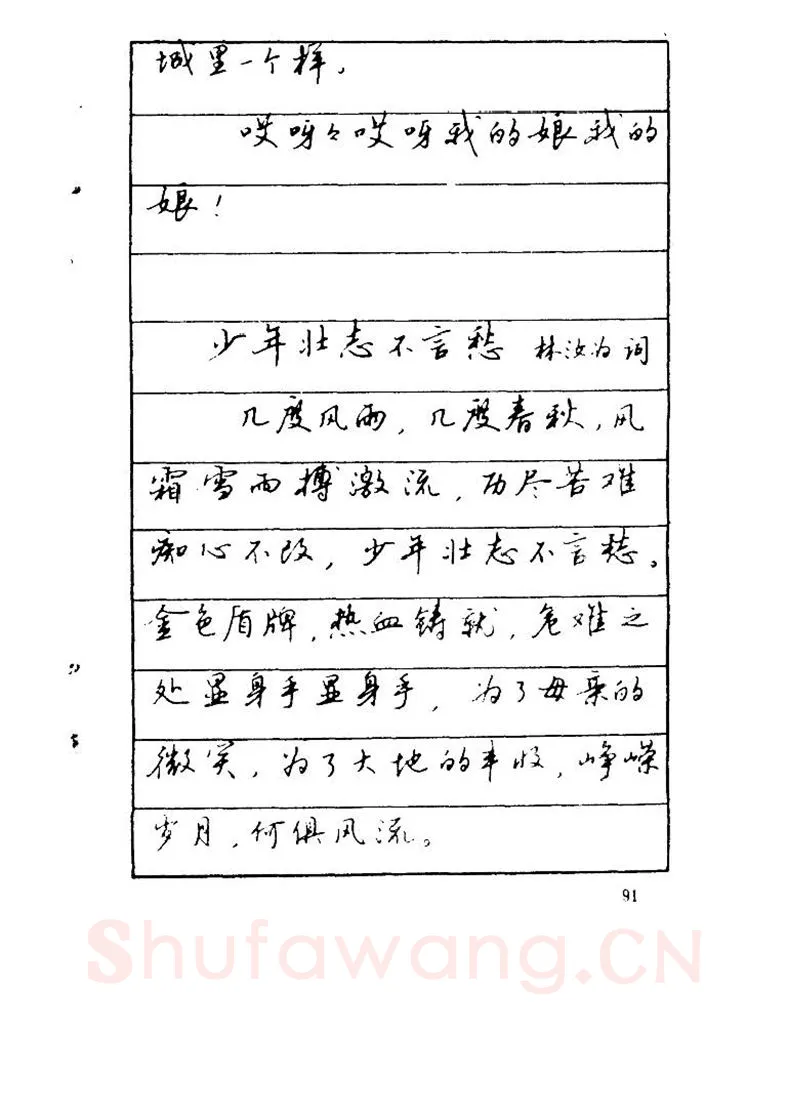 城里一个样，
哎呀々哎呀我的娘我的
娘！
少年壮志不言愁 林汝为词
几度风雨，几度春秋，风
霜雪雨搏激流，历尽苦难
痴心不改，少年壮志不言愁。
金色盾牌，热血铸就，危难之
处显身手显身手，为了母亲的
微笑，为了大地的丰收，峥嵘
岁月，何俱风流。
91
Shufawang.CN